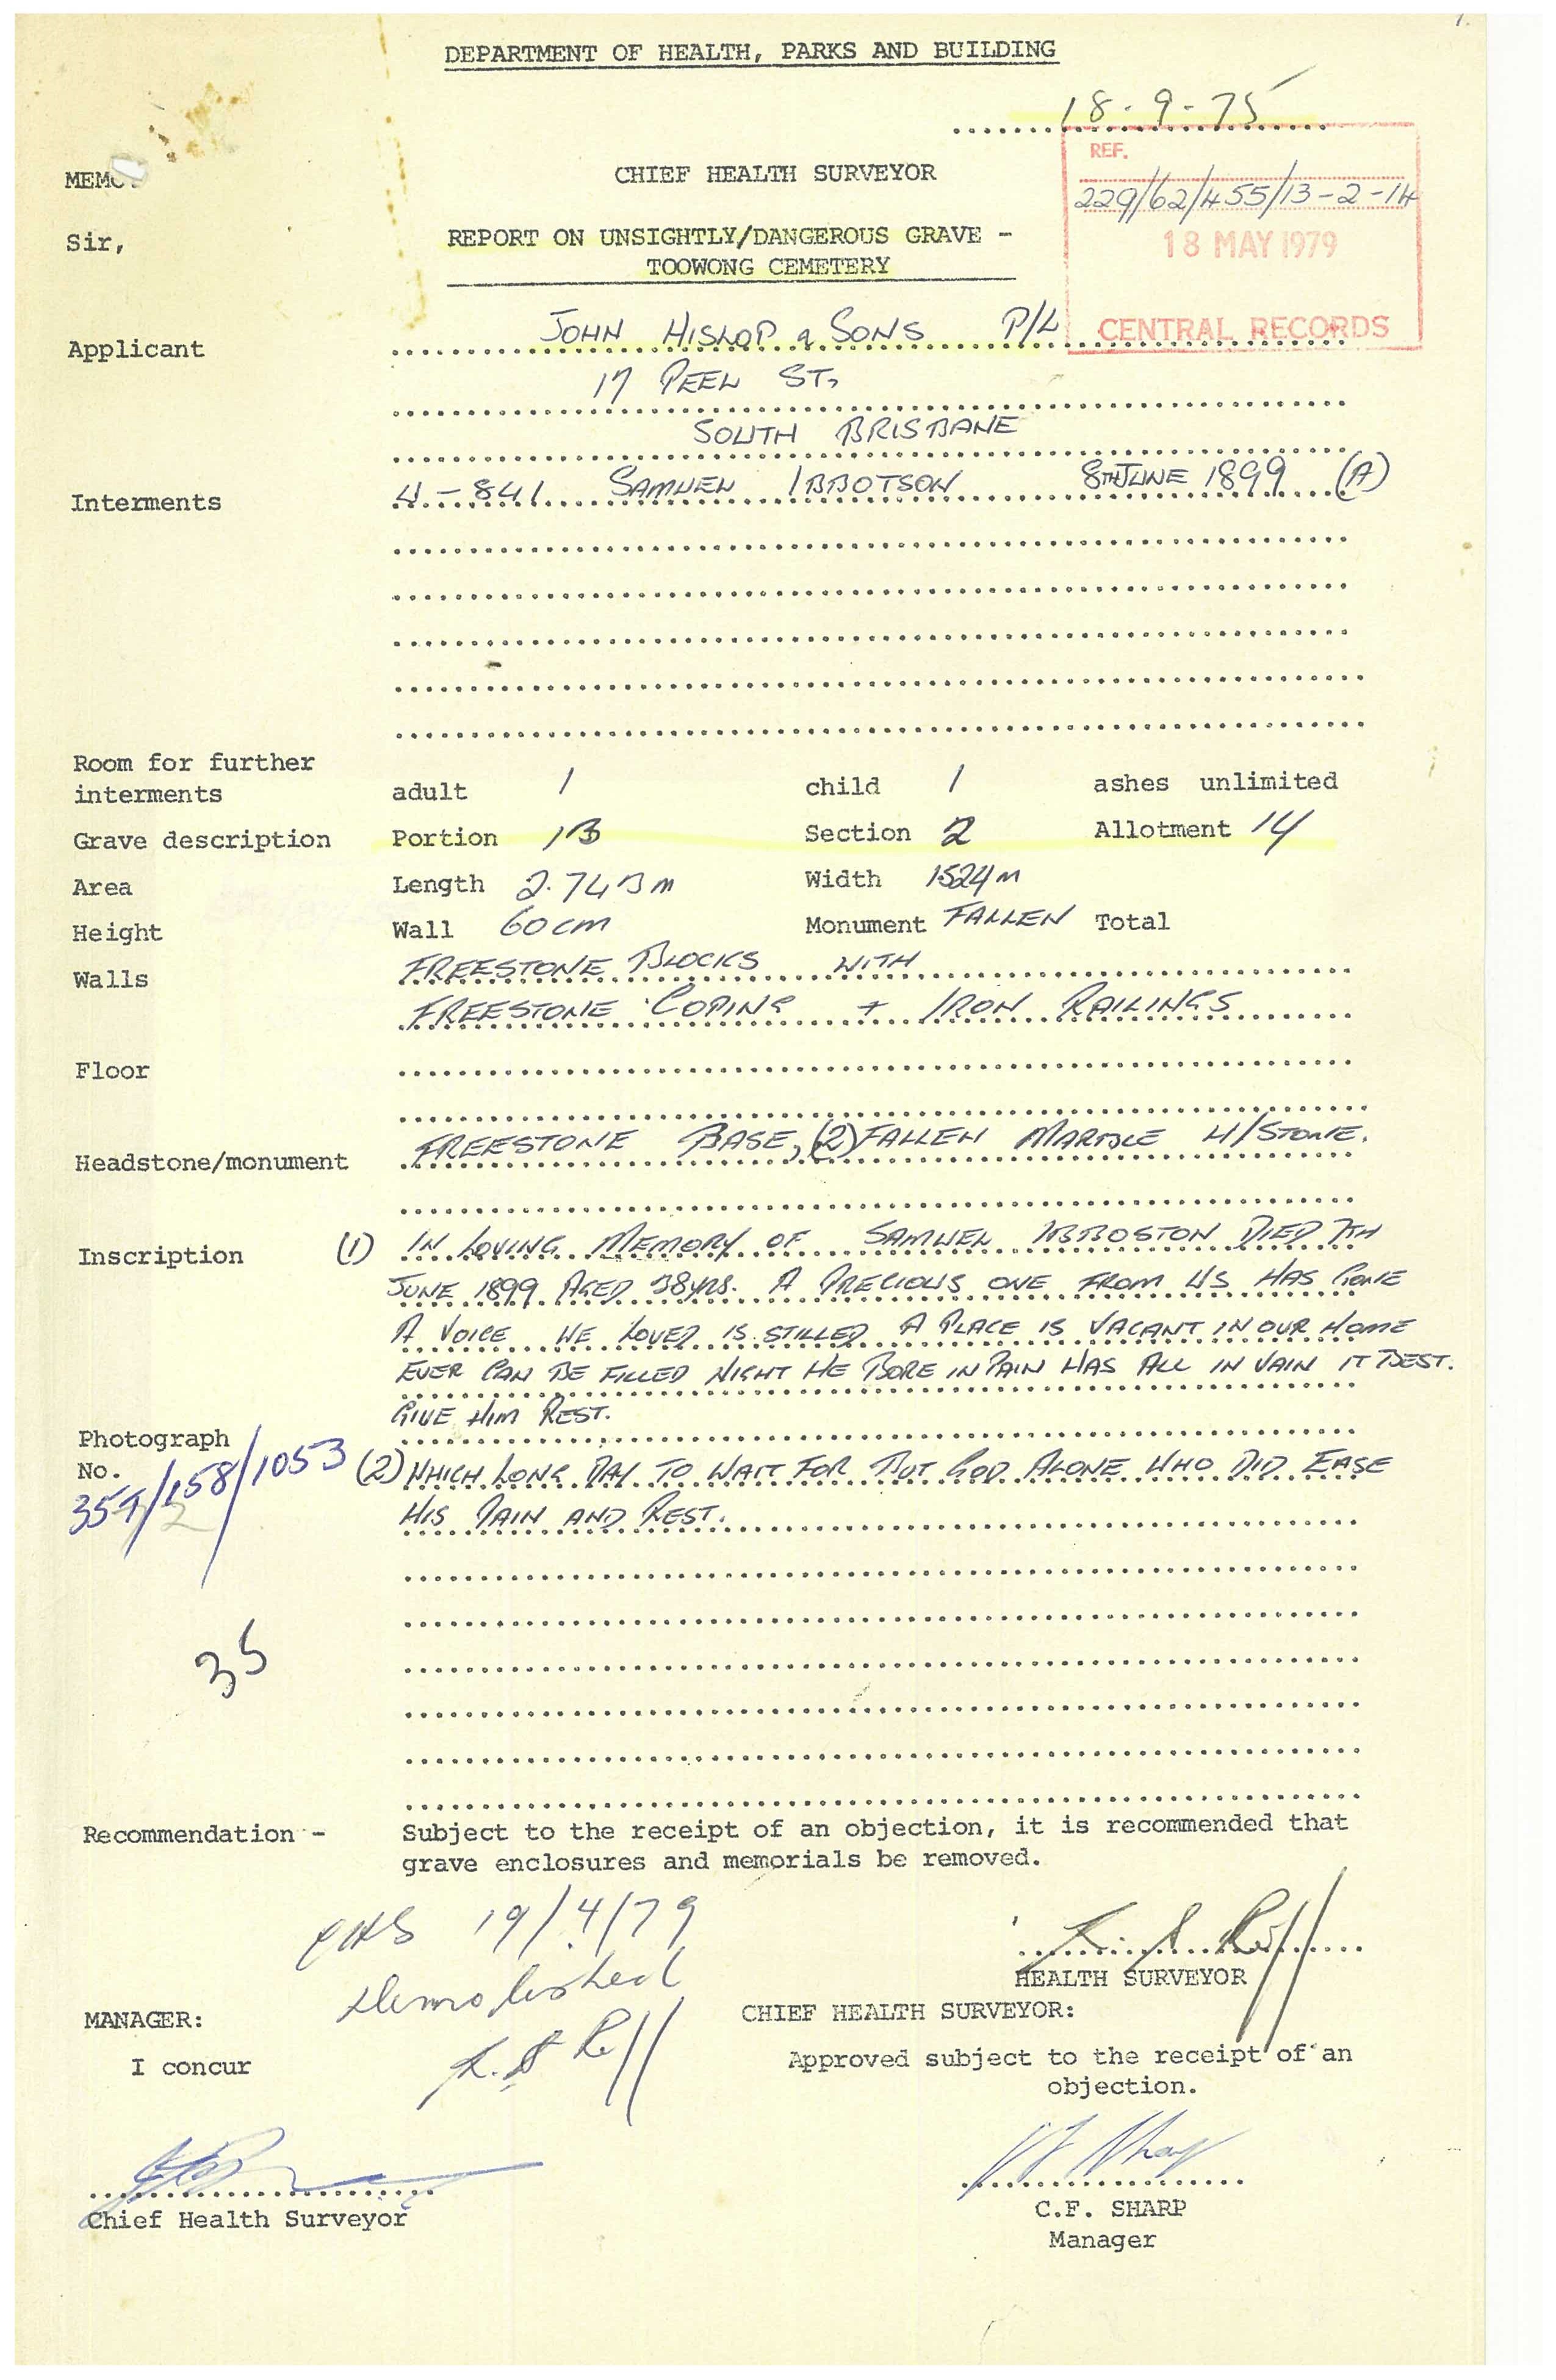 DEPARTMENT OF HEALTH, PARKS AND BUILDING
18-9-75
REF.
229/62/455/13-2-14
18 MAY 1979
CENTRAL RECORDS
MEMO
CHIEF HEALTH SURVEYOR
Sir,
REPORT ON UNSIGHTLY/DANGEROUS GRAVE -
TOOWONG CEMETERY
Applicant JOHN HISLOP & SONS P/L
17 PEEL ST,
SOUTH BRISBANE
Interments 4-841 SAMUEL IBBOTSON 8TH JUNE 1899 (A)
Room for further
interments adult 1 child 1 ashes unlimited
Grave description Portion 13 Section 2 Allotment 14
Area Length 2.743m Width 1524m
Height Wall 60cm Monument FALLEN Total
Walls FREESTONE BLOCKS WITH
FREESTONE COPING + IRON RAILINGS
Floor
Headstone/monument FREESTONE BASE, (2) FALLEN MARBLE H/STONE.
Inscription (1) IN LOVING MEMORY OF SAMUEL IBBOSTON DIED 7TH
JUNE 1899 AGED 38 YRS. A PRECIOUS ONE FROM US HAS GONE
A VOICE WE LOVED IS STILLED A PLACE IS VACANT IN OUR HOME
EVER CAN BE FILLED NIGHT HE BORE IN PAIN HAS ALL IN VAIN IT BEST.
GIVE HIM REST.
Photograph
No. 35 /158/1053
2
(2) WHICH LONG DAY TO WAIT FOR BUT GOD ALONE WHO DID EASE
HIS PAIN AND REST.
35
Recommendation - Subject to the receipt of an objection, it is recommended that
grave enclosures and memorials be removed.
19/4/79
Demolished
HEALTH SURVEYOR
MANAGER:
CHIEF HEALTH SURVEYOR:
I concur
Approved subject to the receipt of an
objection.
Chief Health Surveyor
C.F. SHARP
Manager